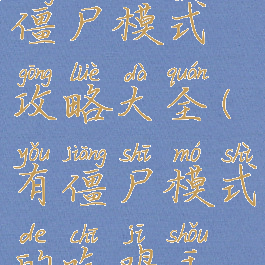 僵尸模式
gōng lüè dà quán
攻略大全(
yǒu jiāng shī mó shì
有僵尸模式
de chī jī shǒu